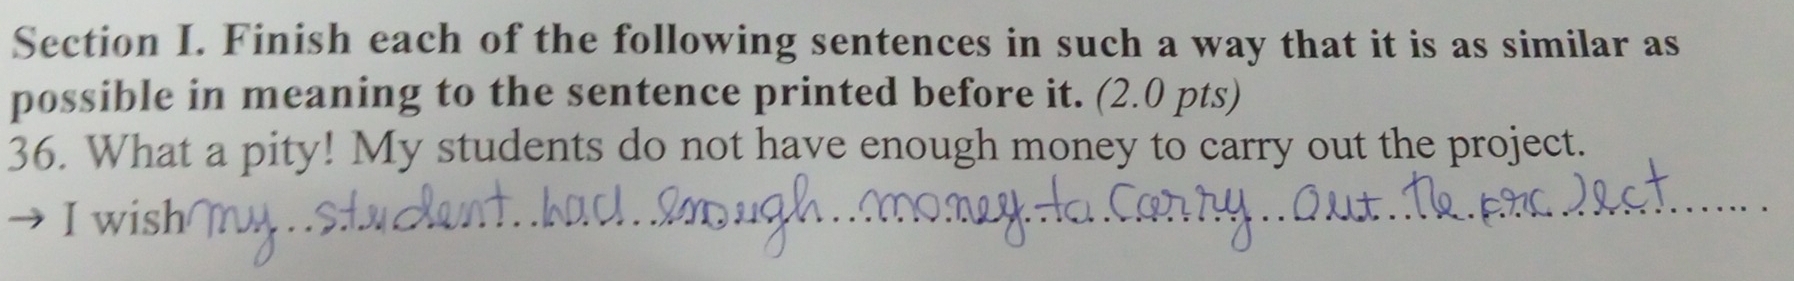 Section I. Finish each of the following sentences in such a way that it is as similar as
possible in meaning to the sentence printed before it. (2.0 pts)
36. What a pity! My students do not have enough money to carry out the project.
→ I wish my student had enough money to carry out the project